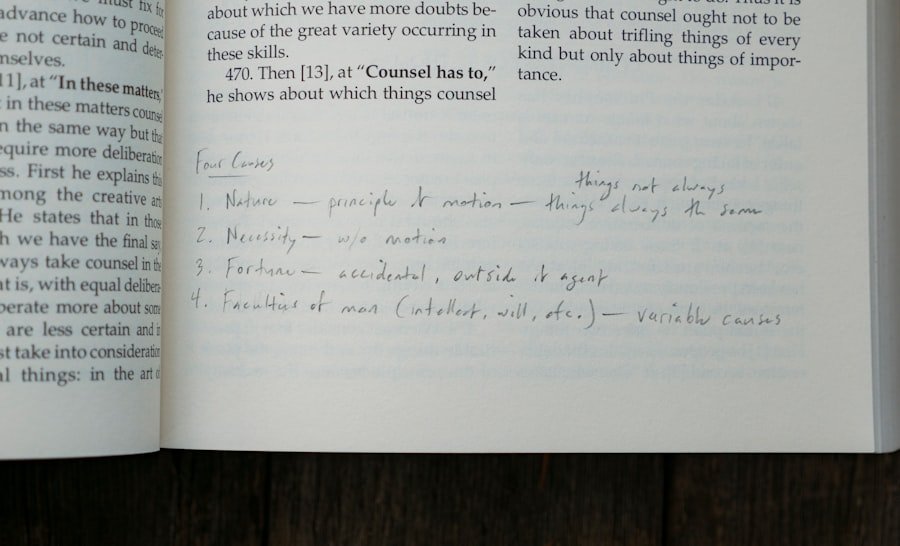 must fix for
advance how to proceed
e not certain and deter-
mselves.
11], at “In these matters,”
in these matters counse
n the same way but tha
equire more deliberation
ss. First he explains this
mong the creative arts
He states that in those
h we have the final say
ways take counsel in the
at is, with equal deliber-
perate more about some
are less certain and in
st take into consideration
al things: in the art of
about which we have more doubts be-
cause of the great variety occurring in
these skills.
470. Then [13], at “Counsel has to,”
he shows about which things counsel
obvious that counsel ought not to be
taken about trifling things of every
kind but only about things of impor-
tance.
Four Causes
things not always
1. Nature — principle of motion — things always the same
2. Necessity — w/o motion
3. Fortune — accidental, outside agent
4. Faculties of man (intellect, will, etc.) — variable causes